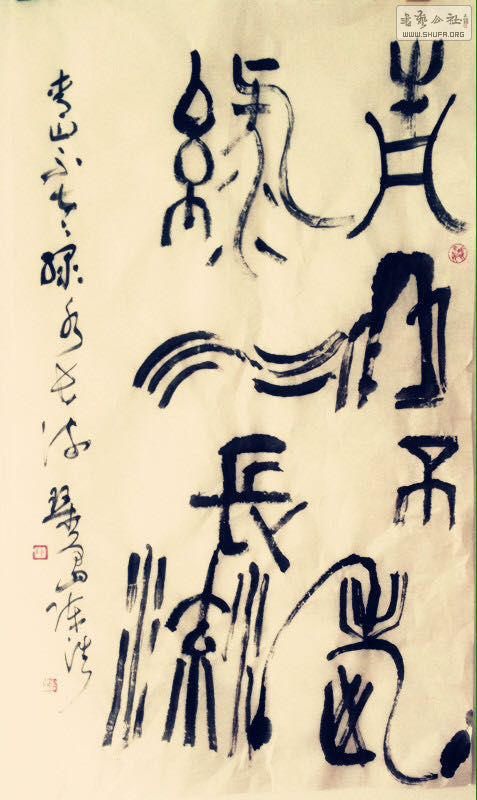 青山不老
綠水長流
青山不老綠水長流
书艺公社
WWW.SHUFA.ORG